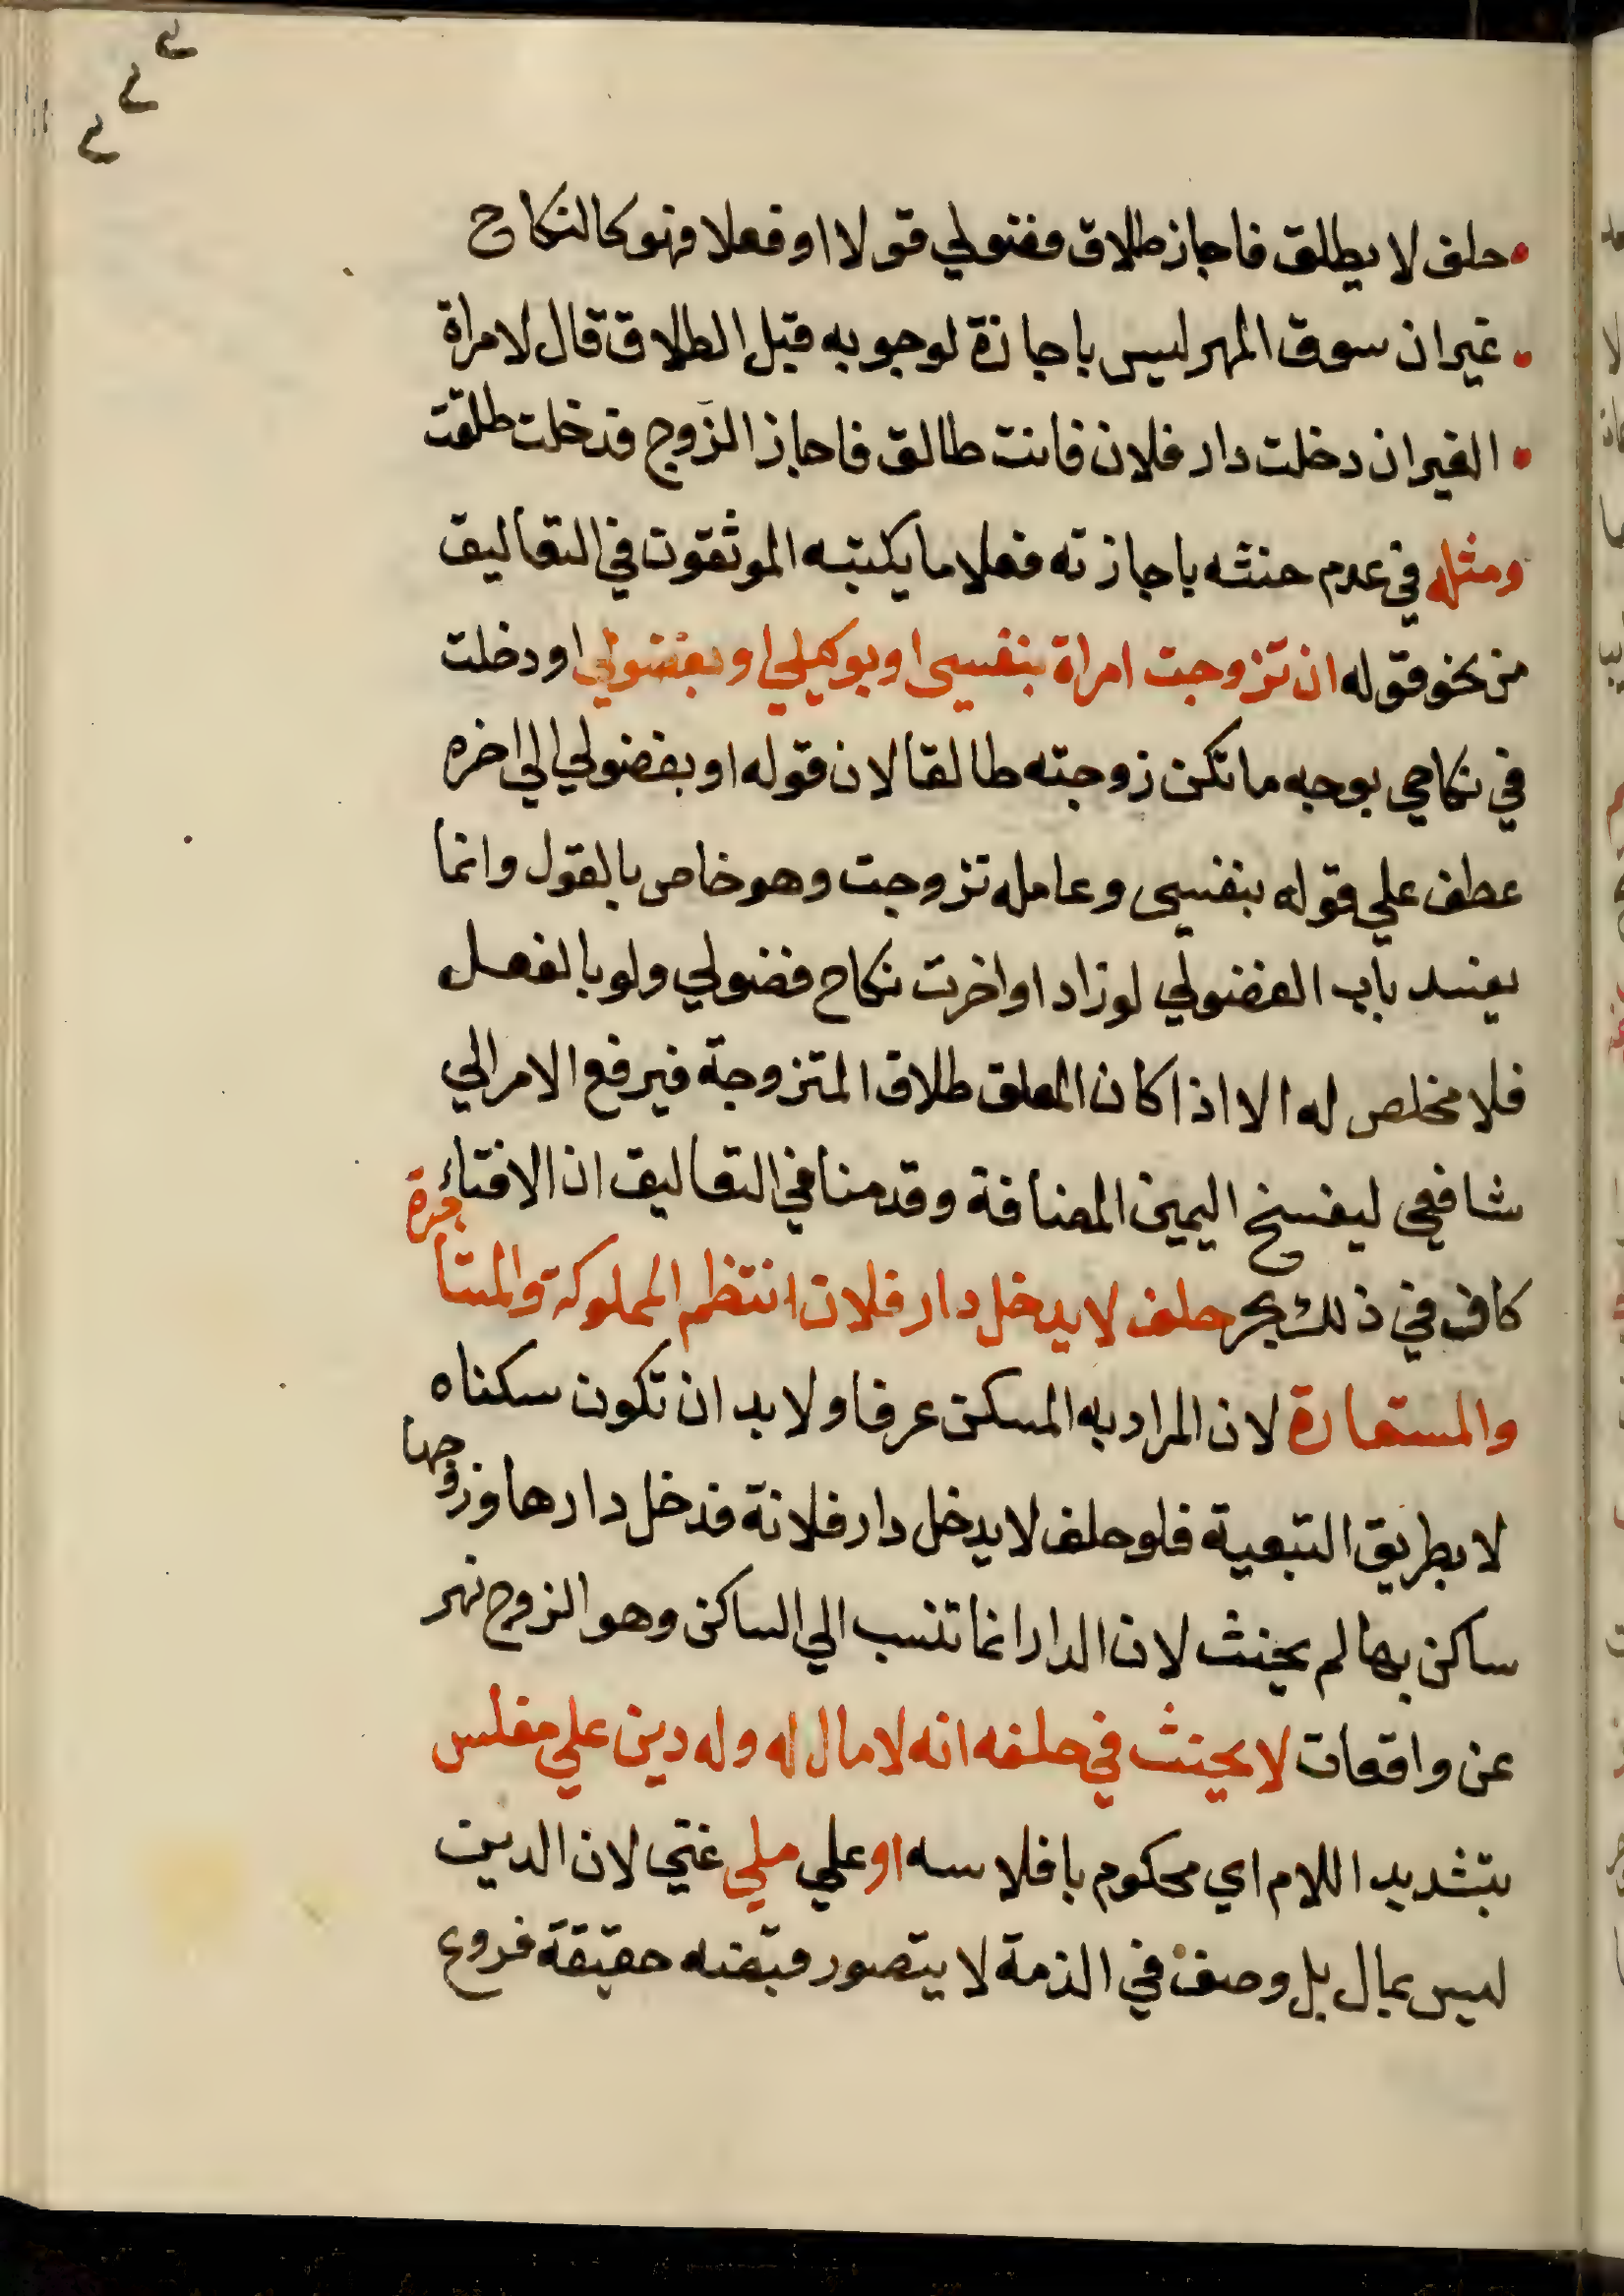 حلف لا يطلق فاجاز طلاق فضولي قولا او فعلا فهو كالنكاح
غير ان سوق المهر ليس باجازة لوجوبه قبل الطلاق قال لامراة
الغير ان دخلت دار فلان فانت طالق فاجاز الزوج فدخلت طلقت
ومثله في عدم حنثه باجازته فعلا ما يكتبه الموثقون في التعاليق
من نحو قوله ان تزوجت امراة بنفسي او بوكيلي او بفضولي او دخلت
في نكاحي بوجه ما تكن زوجته طالقا لان قوله او بفضولي الي اخره
عطف علي قوله بنفسي وعامله تزوجت وهو خاص بالقول وانما
يفسد باب الفضولي لو زاد او اخرت نكاح فضولي ولو بالفعل
فلا مخلص له الا اذا كان المعلق طلاق المتزوجة فيرفع الامر الي
شافعي ليفسخ اليمين المضافة وقدمنا في التعاليق ان الافتاء
كاف في ذلك بحر حلف لا يدخل دار فلان انتظم المملوكة والمستاجرة
والمستعارة لان المراد به المسكن عرفا ولا بد ان تكون سكناه
لا بطريق التبعية فلو حلف لا يدخل دار فلانة فدخل دارها وزوجها
ساكن بها لم يحنث لان الدار انما تنسب الي الساكن وهو الزوج نهر
عن واقعات لا يحنث في حلفه انه لا مال له وله دين علي مفلس
بتشديد اللام اي محكوم بافلاسه او علي ملي غني لان الدين
ليس بمال بل وصف في الذمة لا يتصور قبضه حقيقة فروع